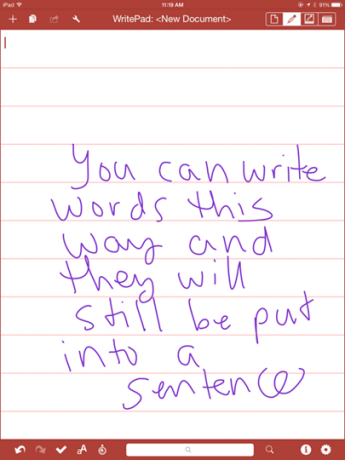 iPad 11:19 AM 91%
WritePad: <New Document>
You can write
words this
way and
they will
still be put
into a
sentence